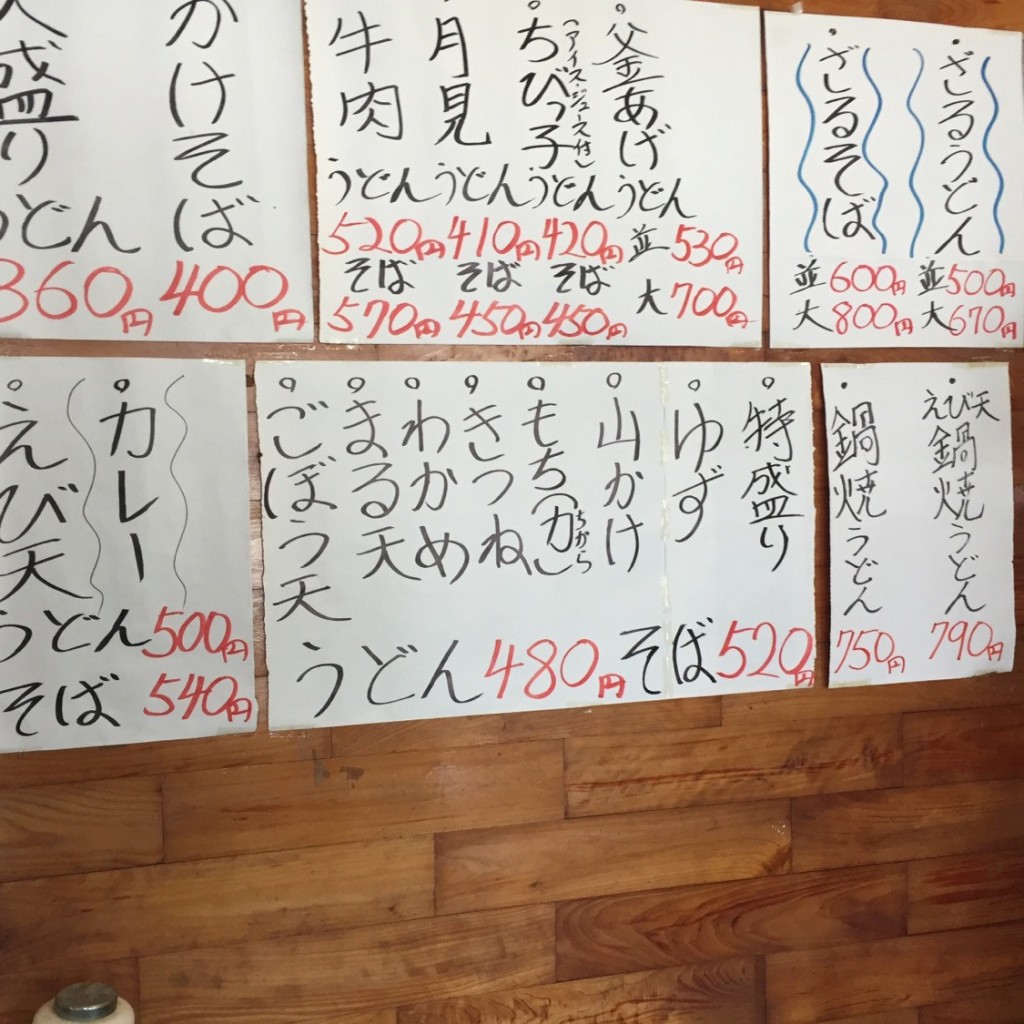 かけそば
400円
大盛り
うどん
360円
釜あげ
うどん
並 530円
大 700円
ちびっ子
(アイス・ジュース付)
うどん
420円
そば
450円
月見
うどん
410円
そば
450円
牛肉
うどん
520円
そば
570円
ざるうどん
並 500円
大 670円
ざるそば
並 600円
大 800円
カレー
えび天
うどん 500円
そば 540円
特盛り
ゆず
山かけ
もち(力)
ちから
きつね
わかめ
まる天
ごぼう天
うどん 480円 そば 520円
えび天
鍋焼うどん
790円
鍋焼うどん
750円